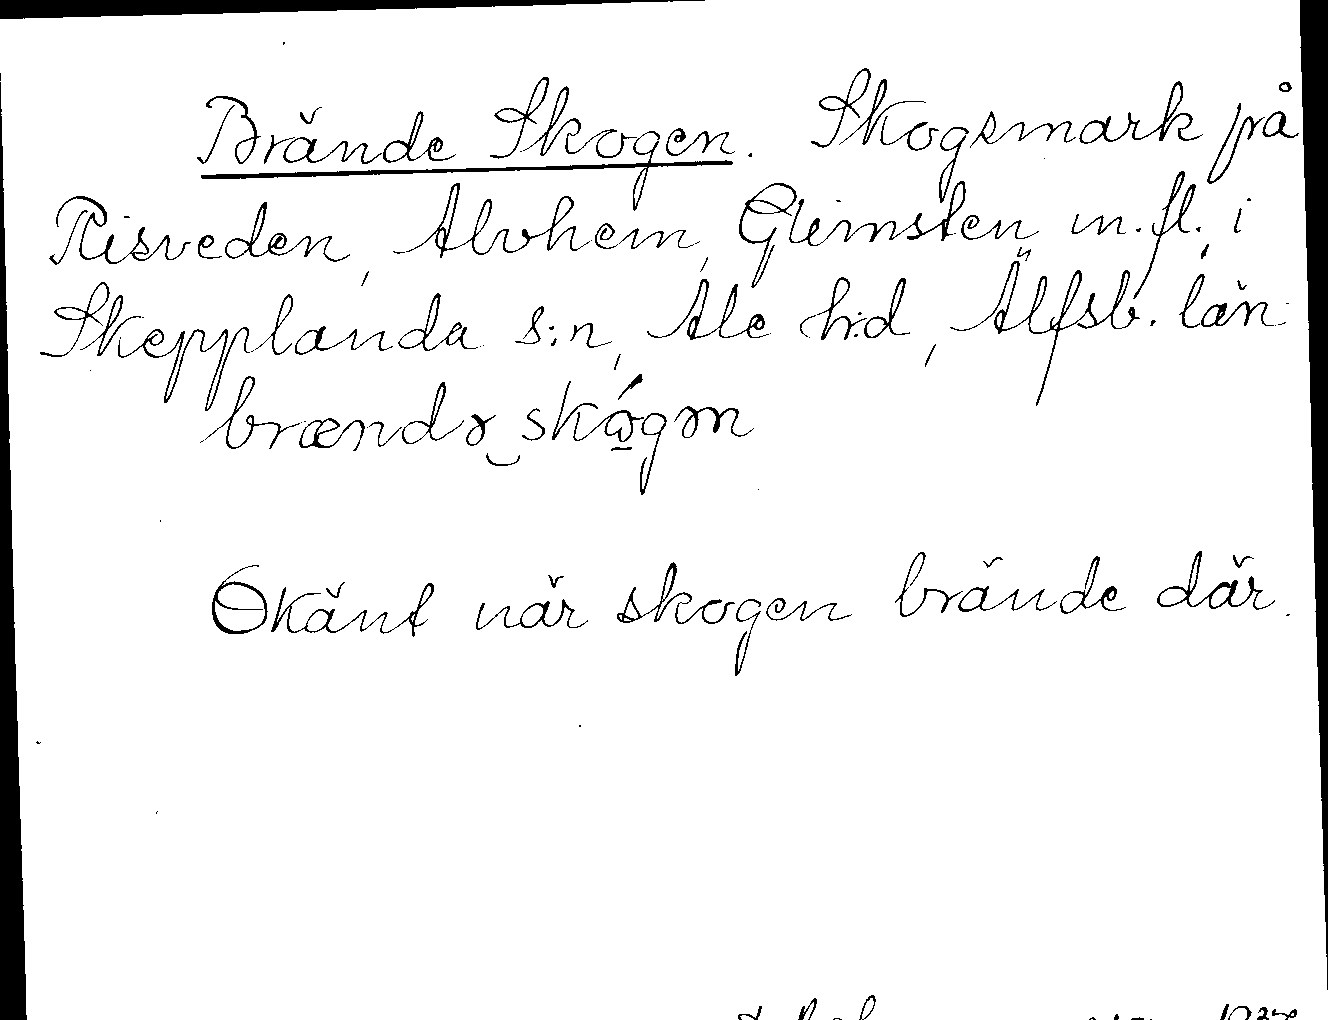 Brände Skogen. Skogsmark på
Risveden, Alvhem, Glimsten m.fl. i
Skepplanda s:n, Ale h:d, Älfsb. län.
brændɘ‿skɷ̱́gɘn
Okänt när skogen brände där.